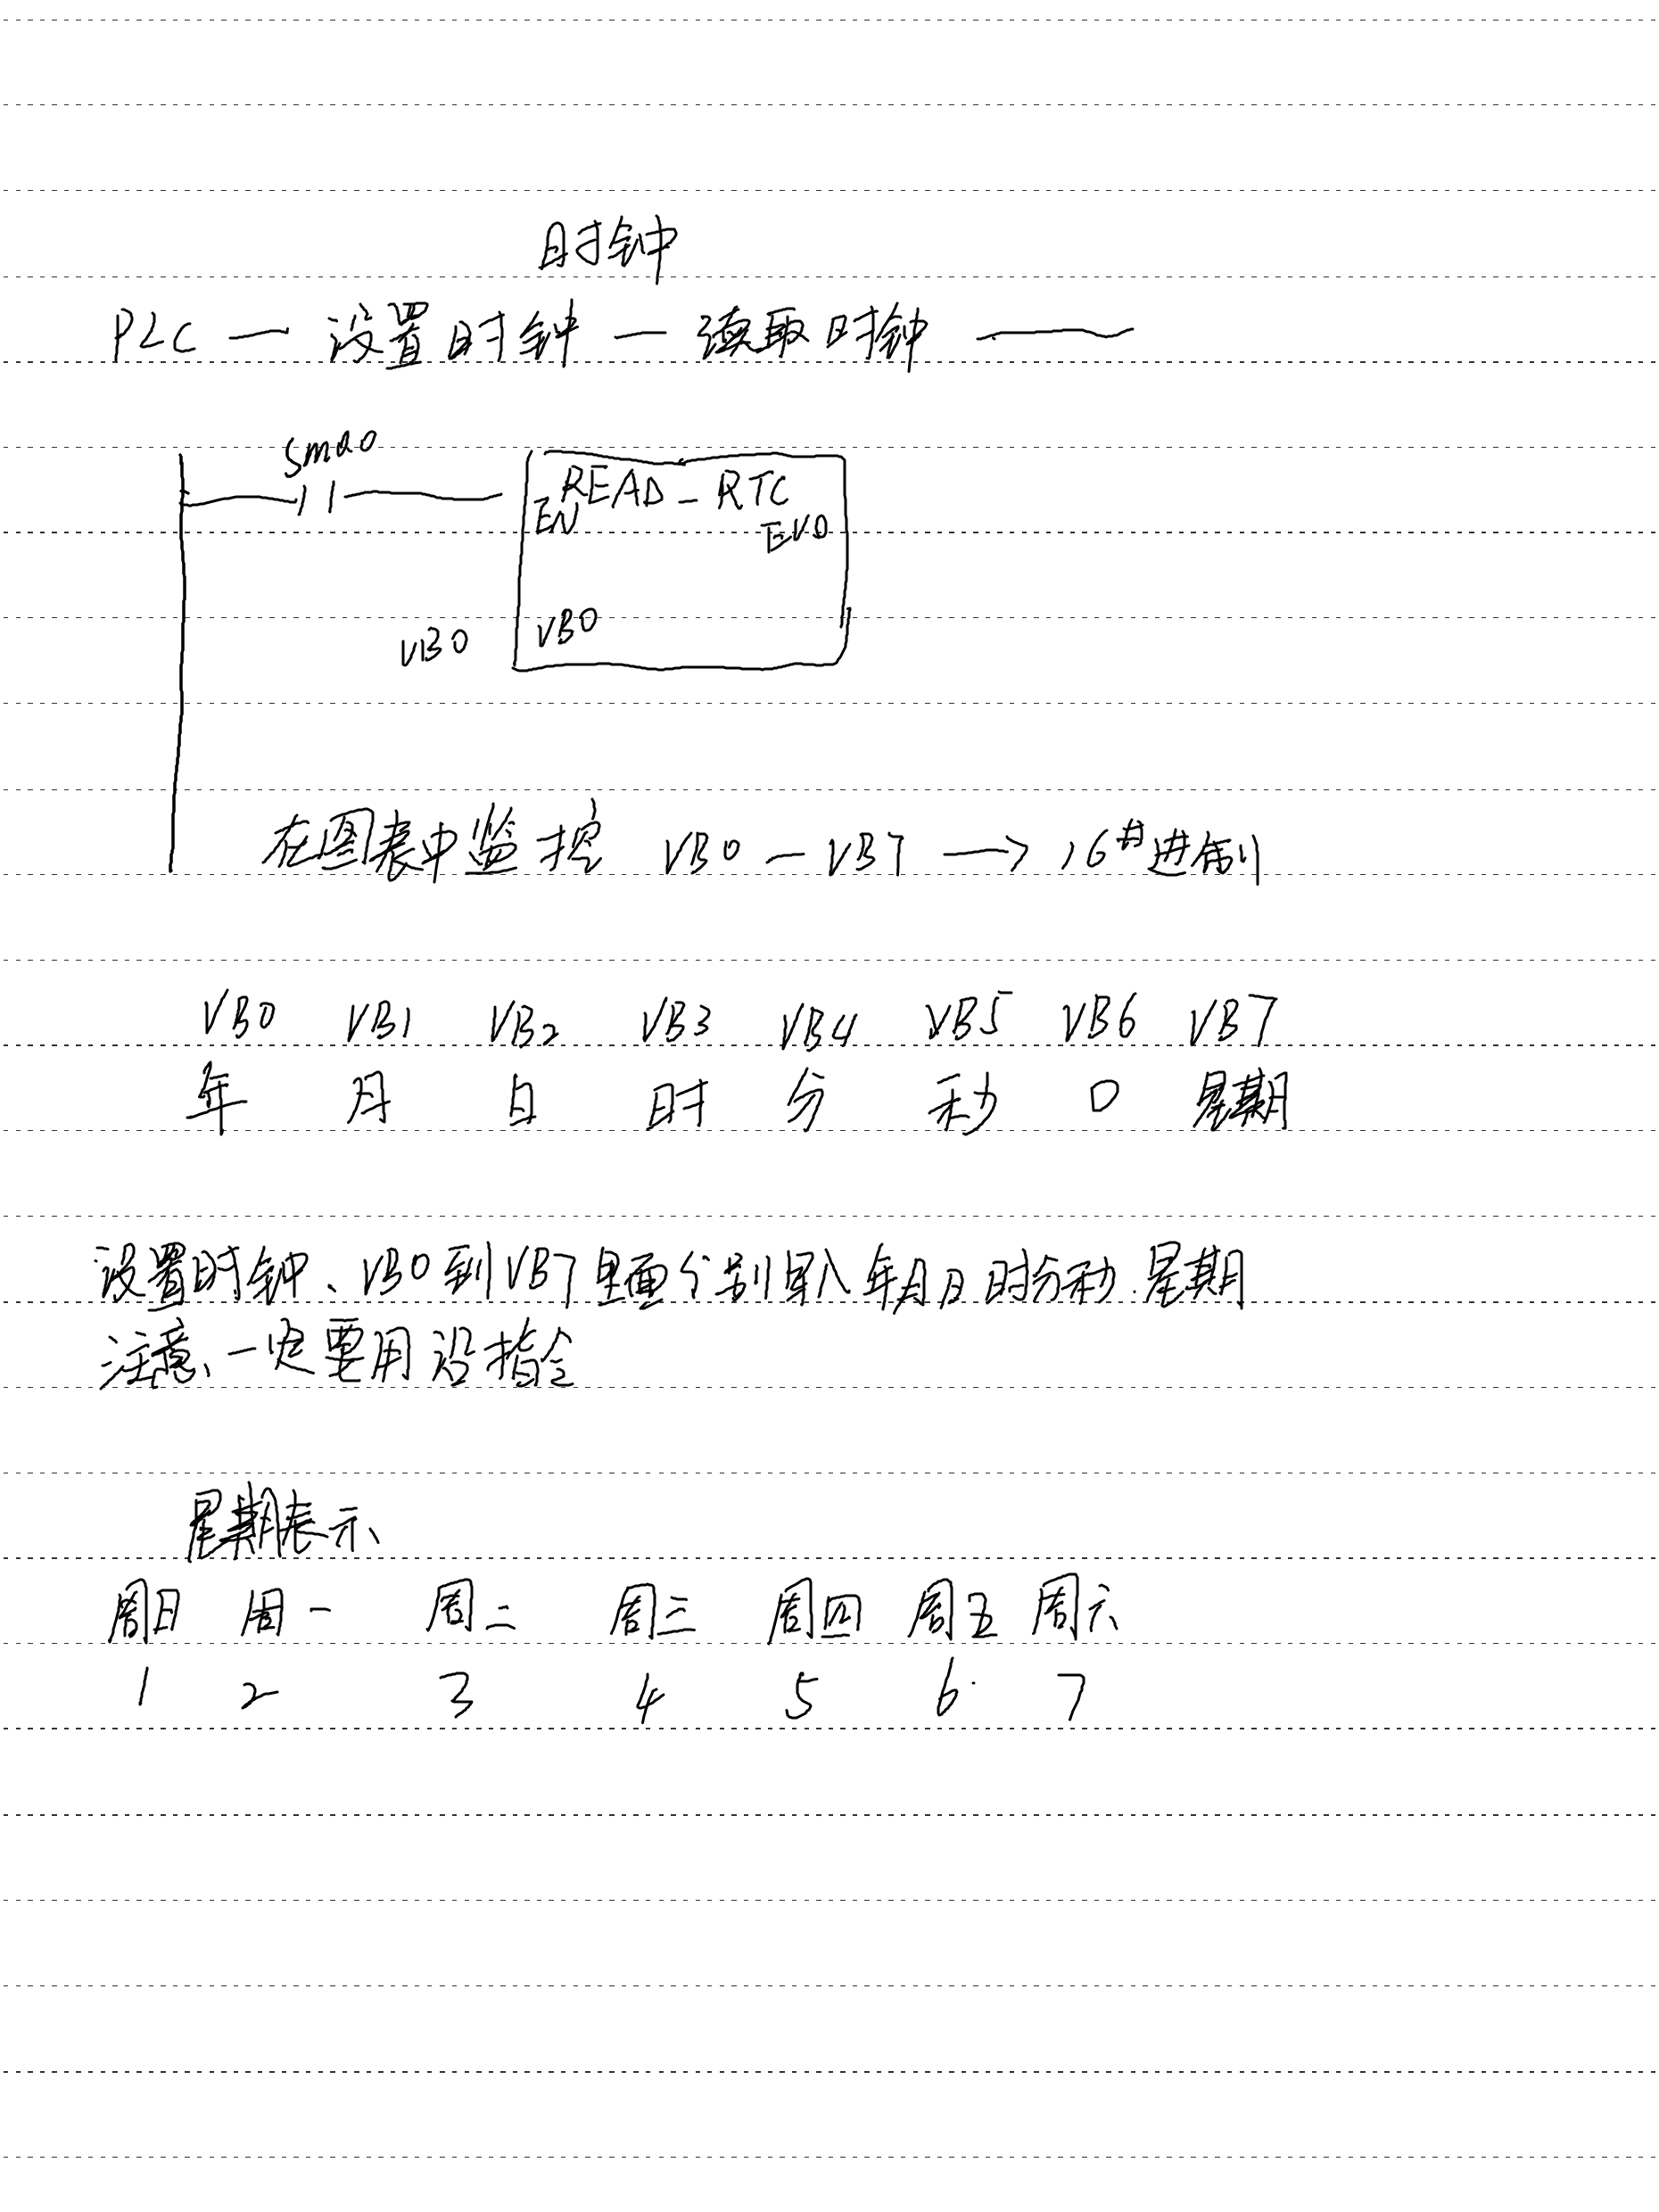 时钟
PLC — 设置时钟 — 读取时钟 —
SM0.0
READ_RTC
EN ENO
VB0 VB0
在图表中监控 VB0 — VB7 → 16#进制
VB0 VB1 VB2 VB3 VB4 VB5 VB6 VB7
年 月 日 时 分 秒 0 星期
设置时钟、VB0到VB7里面分别写入年月日时分秒.星期
注意、一定要用沿指令
星期表示、
周日 周一 周二 周三 周四 周五 周六
1 2 3 4 5 6 7